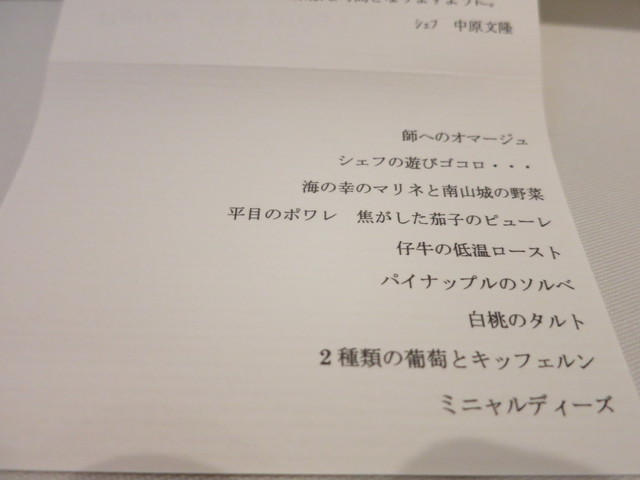 ますように。
シェフ 中原文隆
師へのオマージュ
シェフの遊びゴコロ・・・
海の幸のマリネと南山城の野菜
平目のポワレ 焦がした茄子のピューレ
仔牛の低温ロースト
パイナップルのソルベ
白桃のタルト
2種類の葡萄とキッフェルン
ミニャルディーズ